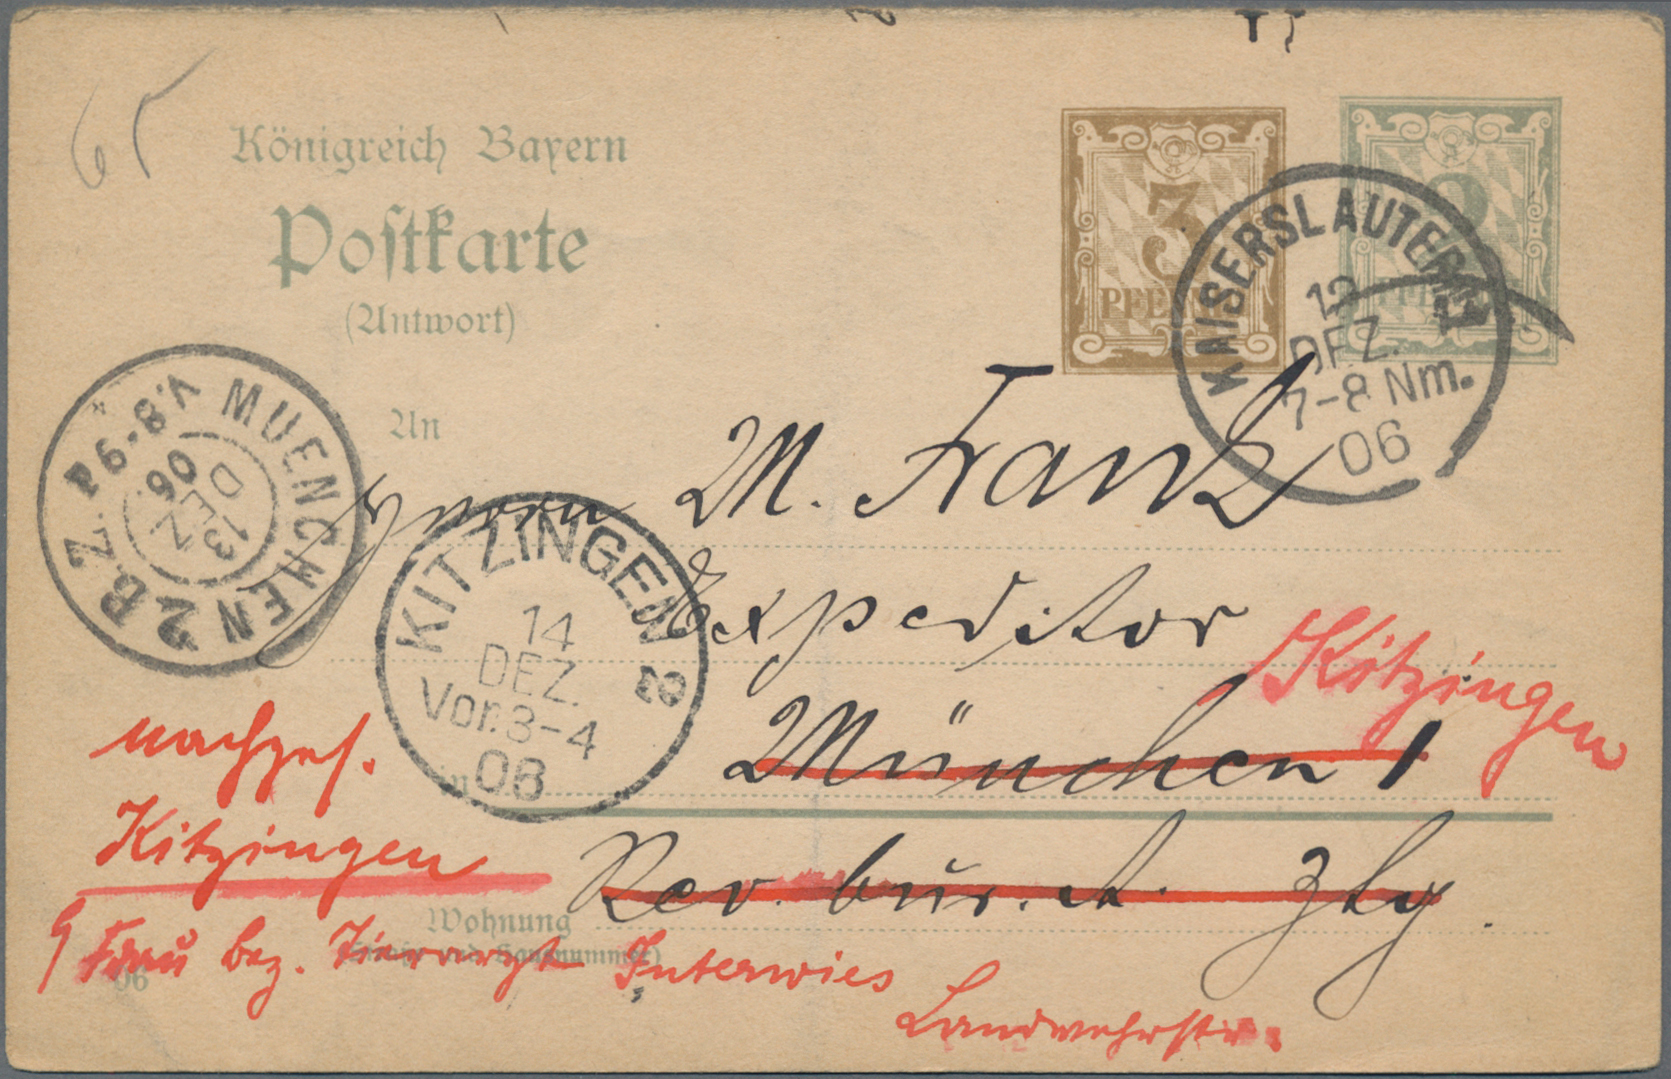 65
Königreich Bayern
Postkarte
(Antwort)
3
PFENNIG
2
KAISERSLAUTERN
12
DEZ.
7-8 Nm.
06
MUENCHEN 2 B.Z.
V.8-9
13
DEZ
06.
An
Herrn M. Frank
Expeditor
Kitzingen
München 1
KITZINGEN 2
14
DEZ.
Vor.3-4
06
in
nachges.
Kitzingen
Rev. bur. d. Ztg.
Wohnung
(Straße und Hausnummer)
b/ Frau bez. Tierarzt Interwies
Landwehrstr.
06